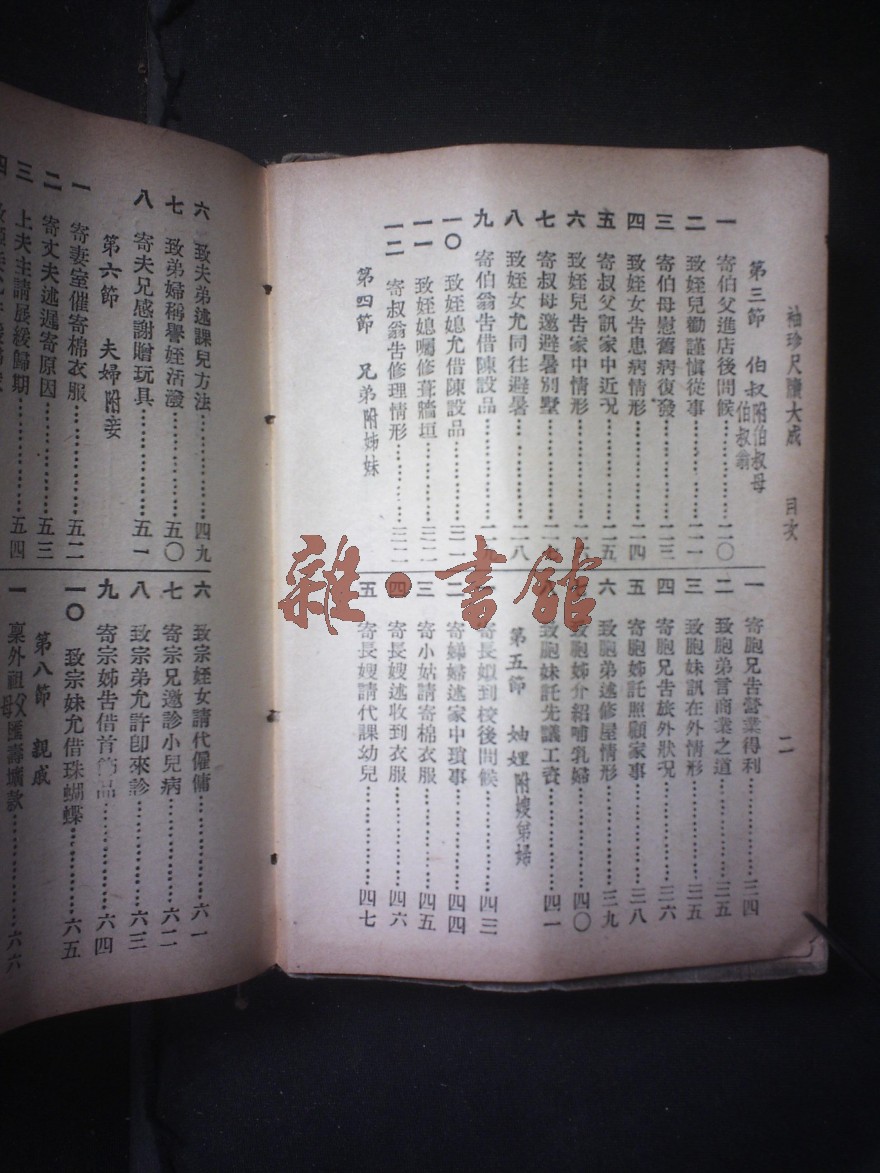 袖珍尺牘大成 目次 二
第三節 伯叔附伯叔母伯叔翁
一 寄伯父進店後問候……………二〇
二 致姪兒勸謹慎從事……………二一
三 寄伯母慰舊病復發……………二三
四 致姪女告患病情形……………二四
五 寄叔父訊家中近況……………二五
六 致姪兒告家中情形……………
七 寄叔母邀避暑別墅……………
八 致姪女允同往避暑……………二八
九 寄伯翁告借陳設品……………二
一〇 致姪媳允借陳設品……………三一
一一 致姪媳囑修葺牆垣……………三二
一二 寄叔翁告修理情形……………三二
第四節 兄弟附姊妹
一 寄胞兄告營業得利……………三四
二 致胞弟言商業之道……………三五
三 致胞妹訊在外情形……………三五
四 寄胞兄告旅外狀況……………三六
五 寄胞姊託照顧家事……………三八
六 致胞弟述修屋情形……………三九
致胞姊介紹哺乳婦……………四〇
致胞妹託先議工資……………四一
第五節 妯娌附嫂弟婦
寄長姒到校後問候……………四三
二 寄娣婦述家中瑣事……………四四
三 寄小姑請寄棉衣服……………四五
四 寄長嫂述收到衣服……………四六
五 寄長嫂請代課幼兒……………四七
六 致夫弟述課兒方法……………四九
七 致弟婦稱譽姪活潑……………五〇
八 寄夫兄感謝贈玩具……………五一
第六節 夫婦附妾
一 寄妻室催寄棉衣服……………五二
二 寄丈夫述遲寄原因……………五三
三 上夫主請展緩歸期……………五四
四
六 致宗姪女請代僱傭……………六一
七 寄宗兄邀診小兒病……………六二
八 致宗弟允許即來診……………六三
九 寄宗姊告借首飾品……………六四
一〇 致宗妹允借珠蝴蝶……………六五
第八節 親戚
一 稟外祖父母匯壽壙款……………六六
雜·書館